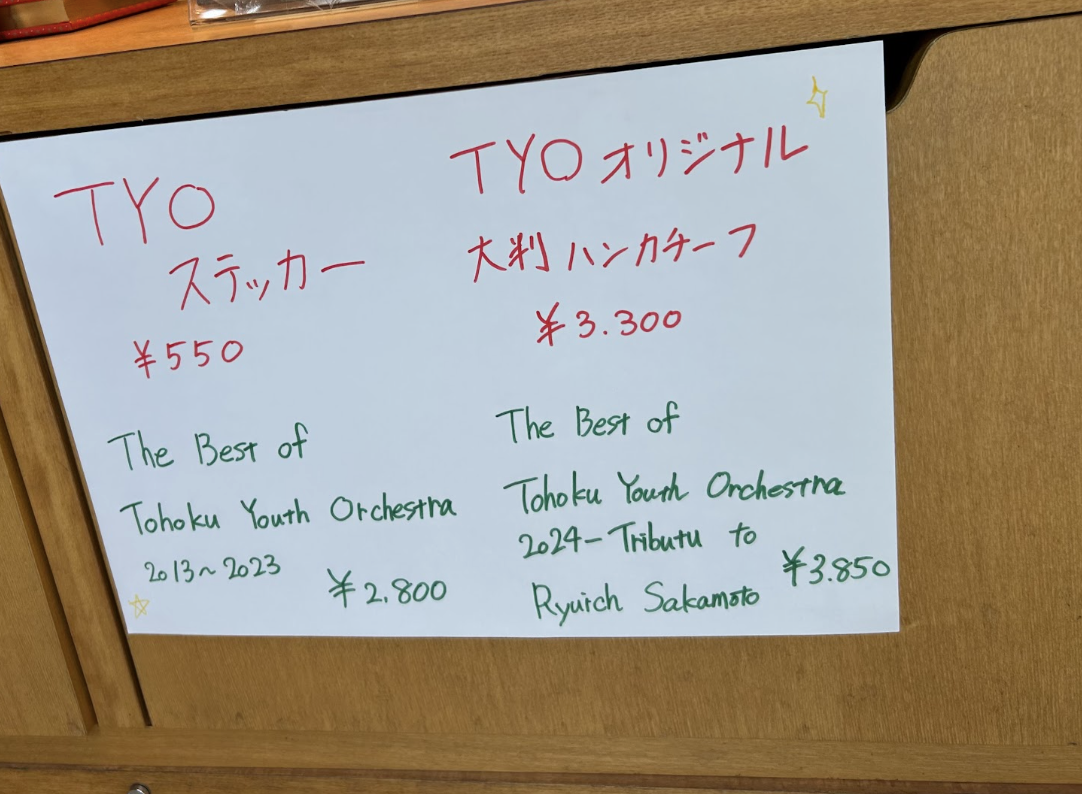 TYO
ステッカー
¥550
TYO オリジナル
大判 ハンカチーフ
¥3.300
The Best of
Tohoku Youth Orchestra
2013~2023
¥2.800
The Best of
Tohoku Youth Orchestra
2024-Tributu to
Ryuich Sakamoto
¥3.850